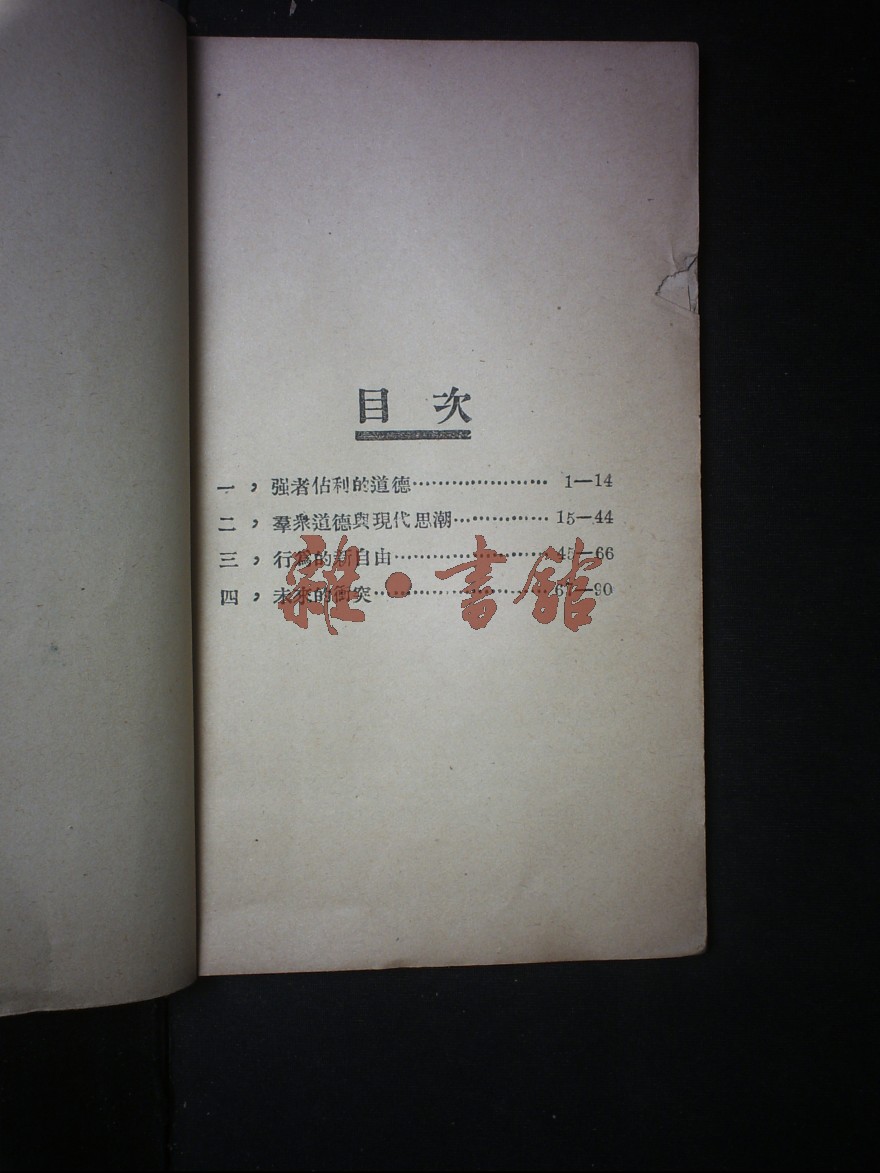 目次
一，强者佔利的道德………………… 1—14
二，羣衆道德與現代思潮…………… 15—44
三，行爲的新自由…………………… 45—66
四，未來的衝突……………………… 67—90
雜·書館